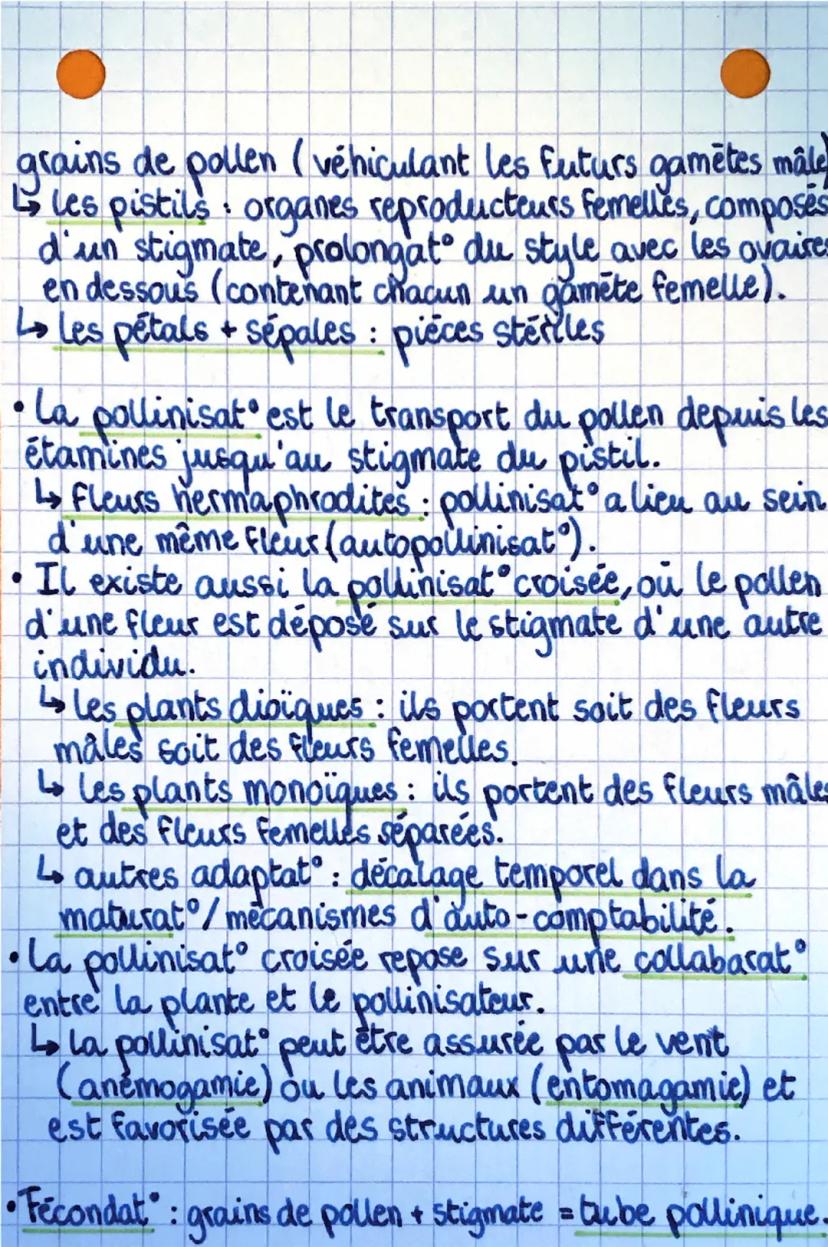 grains de pollen (véhiculant les futurs gamētes mâle)
↳ les pistils : organes reproducteurs femelles, composés
d'un stigmate, prolongat° du style avec les ovaires
en dessous (contenant chacun un gamēte femelle).
↳ les pétals + sépales : piēces stériles
• La pollinisat° est le transport du pollen depuis les
étamines jusqu'au stigmate du pistil.
↳ fleurs hermaphrodites : pollinisat° a lieu au sein
d'une même fleur (autopollinisat°).
• Il existe aussi la pollinisat° croisée, où le pollen
d'une fleur est déposé sur le stigmate d'une autre
individu.
↳ les plants dioïques : ils portent soit des fleurs
mâles soit des fleurs femelles.
↳ les plants monoïques : ils portent des fleurs mâles
et des fleurs femelles séparées.
↳ autres adaptat° : décalage temporel dans la
maturat° / mécanismes d'auto-comptabilité.
• La pollinisat° croisée repose sur une collabarat°
entre la plante et le pollinisateur.
↳ la pollinisat° peut être assurée par le vent
(anémogamie) ou les animaux (entomagamie) et
est favorisée par des structures différentes.
• Fécondat° : grains de pollen + stigmate = tube pollinique.